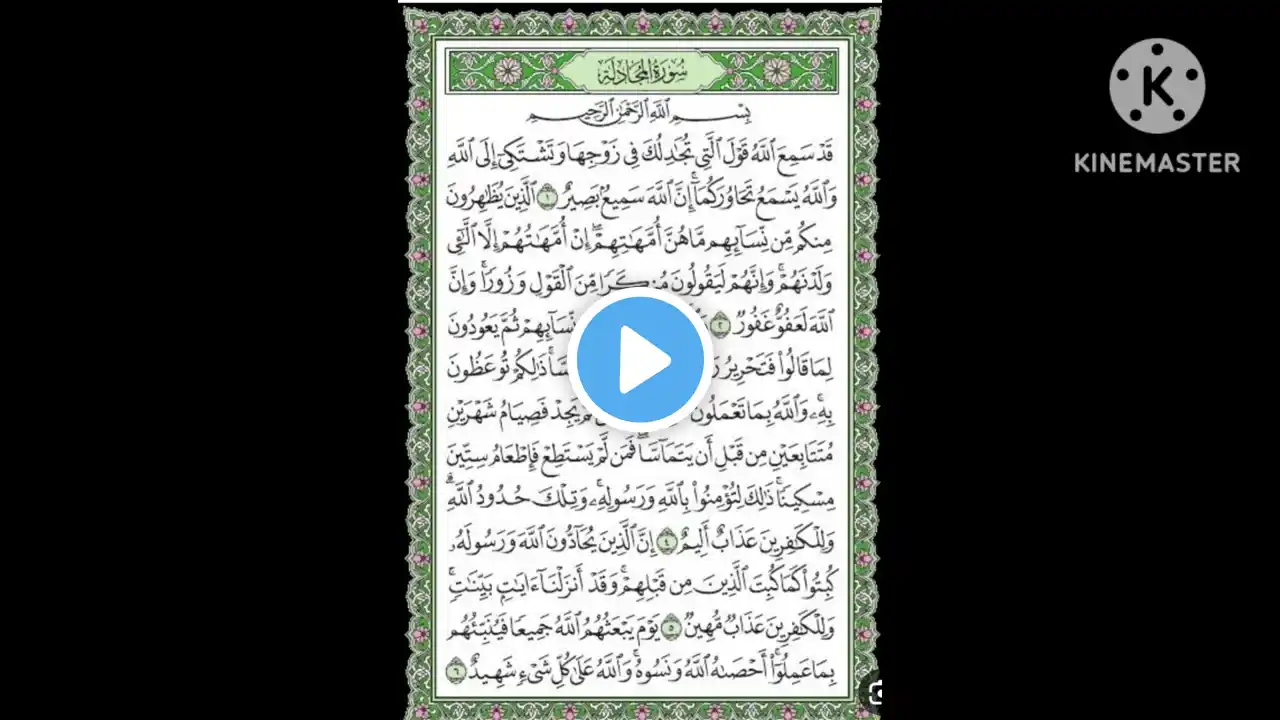 سُورَةُ المُجَادلَة
بِسْمِ ٱللَّهِ ٱلرَّحْمَٰنِ ٱلرَّحِيمِ
قَدْ سَمِعَ ٱللَّهُ قَوْلَ ٱلَّتِى تُجَٰدِلُكَ فِى زَوْجِهَا وَتَشْتَكِىٓ إِلَى ٱللَّهِ
وَٱللَّهُ يَسْمَعُ تَحَاوُرَكُمَآ ۚ إِنَّ ٱللَّهَ سَمِيعٌۢ بَصِيرٌ ١ ٱلَّذِينَ يُظَٰهِرُونَ
مِنكُم مِّن نِّسَآئِهِم مَّا هُنَّ أُمَّهَٰتِهِمْ ۖ إِنْ أُمَّهَٰتُهُمْ إِلَّا ٱلَّٰٓـِٔى
وَلَدْنَهُمْ ۚ وَإِنَّهُمْ لَيَقُولُونَ مُنكَرًا مِّنَ ٱلْقَوْلِ وَزُورًا ۚ وَإِنَّ
ٱللَّهَ لَعَفُوٌّ غَفُورٌ ٢ نِّسَآئِهِمْ ثُمَّ يَعُودُونَ
لِمَا قَالُوا۟ فَتَحْرِيرُ ذَٰلِكُمْ تُوعَظُونَ
بِهِۦ ۚ وَٱللَّهُ بِمَا تَعْمَلُونَ يَجِدْ فَصِيَامُ شَهْرَيْنِ
مُتَتَابِعَيْنِ مِن قَبْلِ أَن يَتَمَآسَّا ۖ فَمَن لَّمْ يَسْتَطِعْ فَإِطْعَامُ سِتِّينَ
مِسْكِينًا ۚ ذَٰلِكَ لِتُؤْمِنُوا۟ بِٱللَّهِ وَرَسُولِهِۦ ۚ وَتِلْكَ حُدُودُ ٱللَّهِ ۗ
وَلِلْكَٰفِرِينَ عَذَابٌ أَلِيمٌ ٤ إِنَّ ٱلَّذِينَ يُحَآدُّونَ ٱللَّهَ وَرَسُولَهُۥ
كُبِتُوا۟ كَمَا كُبِتَ ٱلَّذِينَ مِن قَبْلِهِمْ ۚ وَقَدْ أَنزَلْنَآ ءَايَٰتٍۭ بَيِّنَٰتٍ ۚ
وَلِلْكَٰفِرِينَ عَذَابٌ مُّهِينٌ ٥ يَوْمَ يَبْعَثُهُمُ ٱللَّهُ جَمِيعًا فَيُنَبِّئُهُم
بِمَا عَمِلُوٓا۟ ۚ أَحْصَىٰهُ ٱللَّهُ وَنَسُوهُ ۚ وَٱللَّهُ عَلَىٰ كُلِّ شَىْءٍ شَهِيدٌ ٦
KINEMASTER